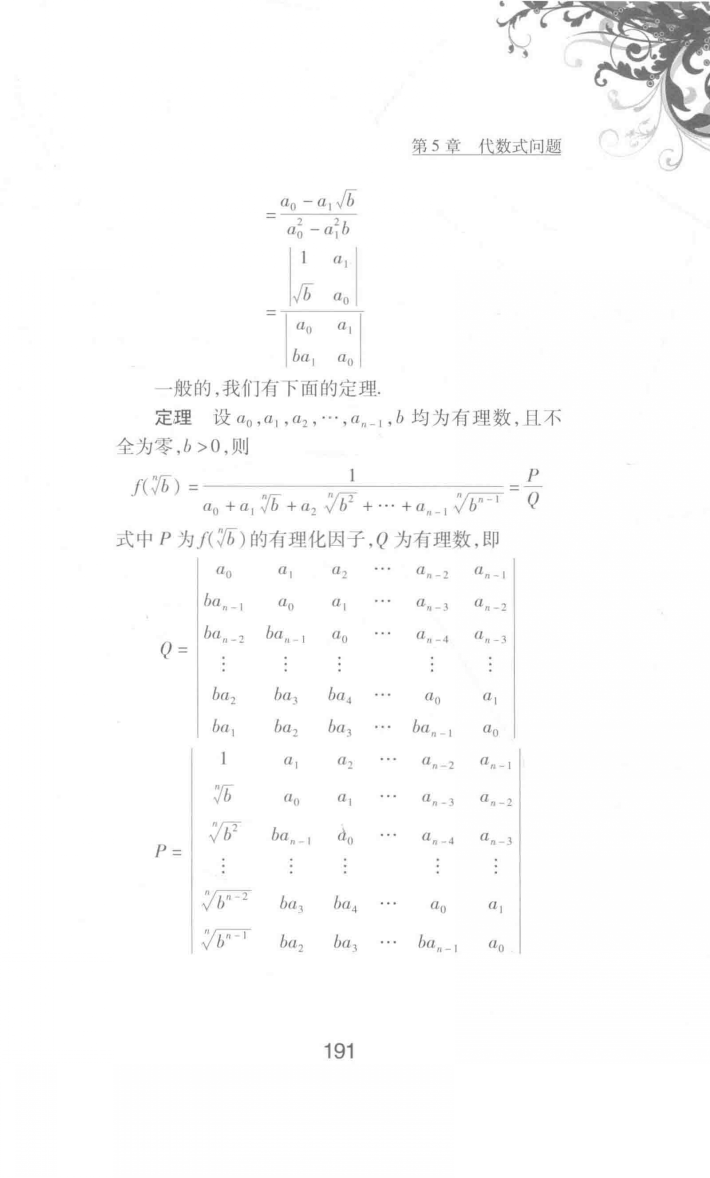 第5章 代数式问题
$=\dfrac{a_0-a_1\sqrt{b}}{a_0^2-a_1^2b}$
$=\dfrac{\begin{vmatrix}1&a_1\\\sqrt{b}&a_0\end{vmatrix}}{\begin{vmatrix}a_0&a_1\\ba_1&a_0\end{vmatrix}}$
一般的,我们有下面的定理.
定理 设 $a_0,a_1,a_2,\cdots,a_{n-1},b$ 均为有理数,且不
全为零,$b>0$,则
$f(\sqrt[n]{b})=\dfrac{1}{a_0+a_1\sqrt[n]{b}+a_2\sqrt[n]{b^2}+\cdots+a_{n-1}\sqrt[n]{b^{n-1}}}=\dfrac{P}{Q}$
式中 $P$ 为 $f(\sqrt[n]{b})$ 的有理化因子,$Q$ 为有理数,即
$Q=\begin{vmatrix}a_0&a_1&a_2&\cdots&a_{n-2}&a_{n-1}\\ba_{n-1}&a_0&a_1&\cdots&a_{n-3}&a_{n-2}\\ba_{n-2}&ba_{n-1}&a_0&\cdots&a_{n-4}&a_{n-3}\\\vdots&\vdots&\vdots&&\vdots&\vdots\\ba_2&ba_3&ba_4&\cdots&a_0&a_1\\ba_1&ba_2&ba_3&\cdots&ba_{n-1}&a_0\end{vmatrix}$
$P=\begin{vmatrix}1&a_1&a_2&\cdots&a_{n-2}&a_{n-1}\\\sqrt[n]{b}&a_0&a_1&\cdots&a_{n-3}&a_{n-2}\\\sqrt[n]{b^2}&ba_{n-1}&a_0&\cdots&a_{n-4}&a_{n-3}\\\vdots&\vdots&\vdots&&\vdots&\vdots\\\sqrt[n]{b^{n-2}}&ba_3&ba_4&\cdots&a_0&a_1\\\sqrt[n]{b^{n-1}}&ba_2&ba_3&\cdots&ba_{n-1}&a_0\end{vmatrix}$
191